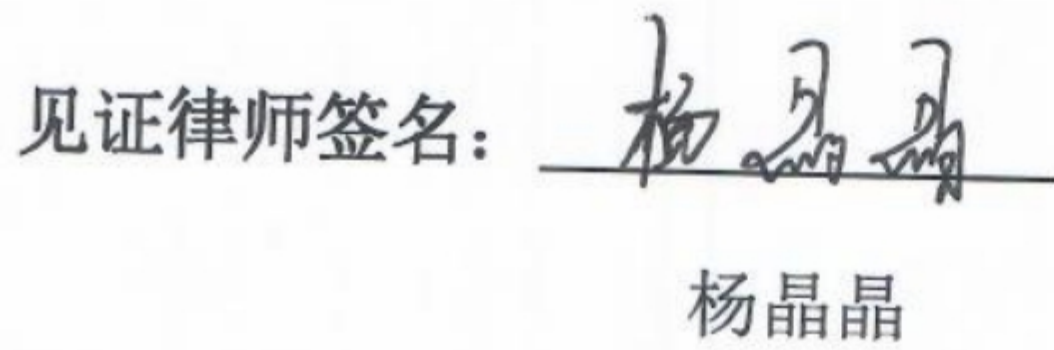 见证律师签名：杨晶晶
杨晶晶